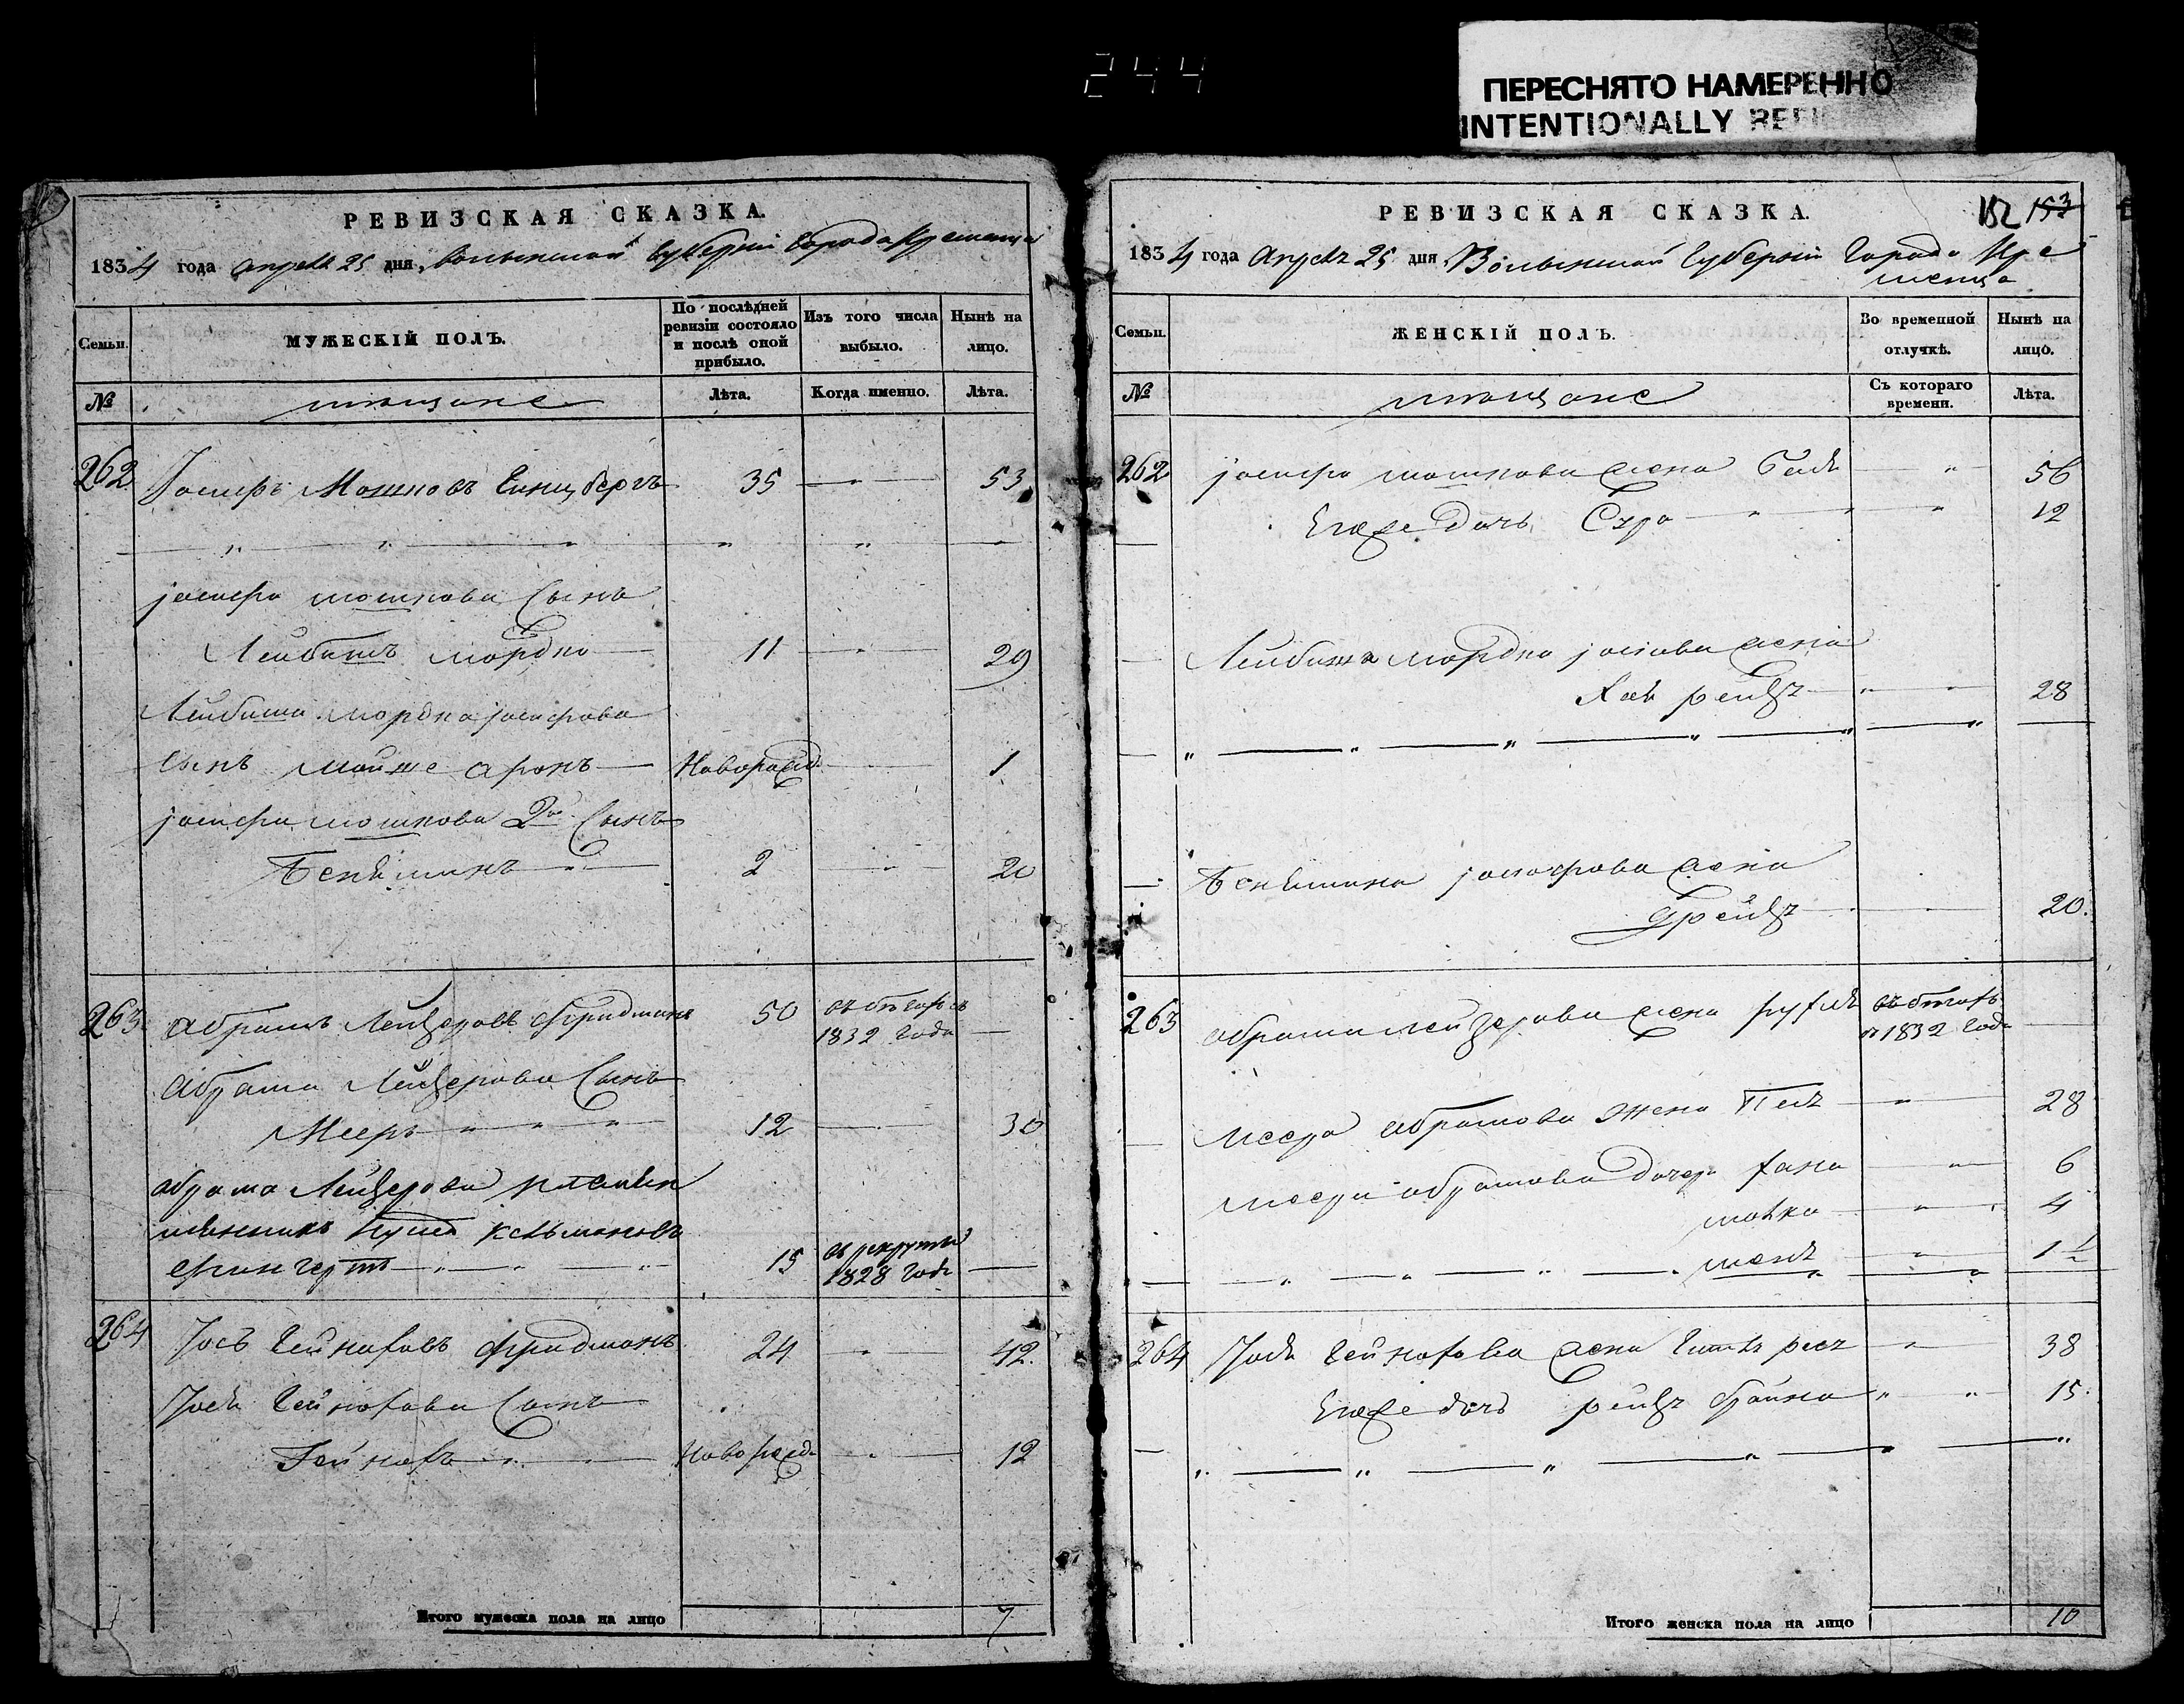 244
ПЕРЕСНЯТО НАМЕРЕННО
INTENTIONALLY
РЕВИЗСКАЯ СКАЗКА.
1834 года апреля 25 дня, Волынской Губернии Города Кременца
Семьи.
МУЖЕСКІЙ ПОЛЪ.
По послѣдней ревизіи состояло и послѣ оной прибыло.
Изъ того числа выбыло.
Нынѣ на лицо.
№
мещане
Лѣта.
Когда именно.
Лѣта.
262 Іосифъ Мошковъ Гинцбергъ 35 — " — 53
Іосифа Мошкова Сынъ
Лейбишъ Мордко 11 — " — 29
Лейбиша Мордка Іосифова
сынъ Мойше Аронъ Новорожд. 1
Іосифа Мошкова 2й Сынъ
Беніминъ 2 20
263 Абрамъ Лейзеровъ Фридманъ 50 въ бегахъ съ
1832 года
Абрама Лейзерова Сынъ
Мееръ " " " 12 30
Абрама Лейзерова племян
никъ Кельмановъ
15 въ рекруты
1828 года
264 Іось Гейноховъ Фридманъ 24 42.
Іося Гейнохова Сынъ
Гейнохъ Новорожд. 12
Итого мужеска пола на лицо 7
РЕВИЗСКАЯ СКАЗКА.
152 153
1834 года Апреля 25 дня Волынской Губерніи Города Кре
менца
Семьи.
ЖЕНСКІЙ ПОЛЪ.
Во временной отлучкѣ.
Нынѣ на лицо.
№
мещане
Съ котораго времени.
Лѣта.
262 Іосифа Мошкова жена Бейля " 56
Егоже дочь Сура " 12
Лейбиша Мордка Іосіова жена
Хая рейзя 28
Беніамина Іосифова жена
Фрейдя 20.
263 Абрама Лейзерова жена Рухля въ бегахъ
съ 1832 года
Меера Абрамова жена Песя " 28
Меера Абрамова дочери Хана " 6
4
1 ½
264 Іося Гейнохова жена Гитля " 38
Егоже дочь рейзя фрейна " 15.
Итого женска пола на лицо 10